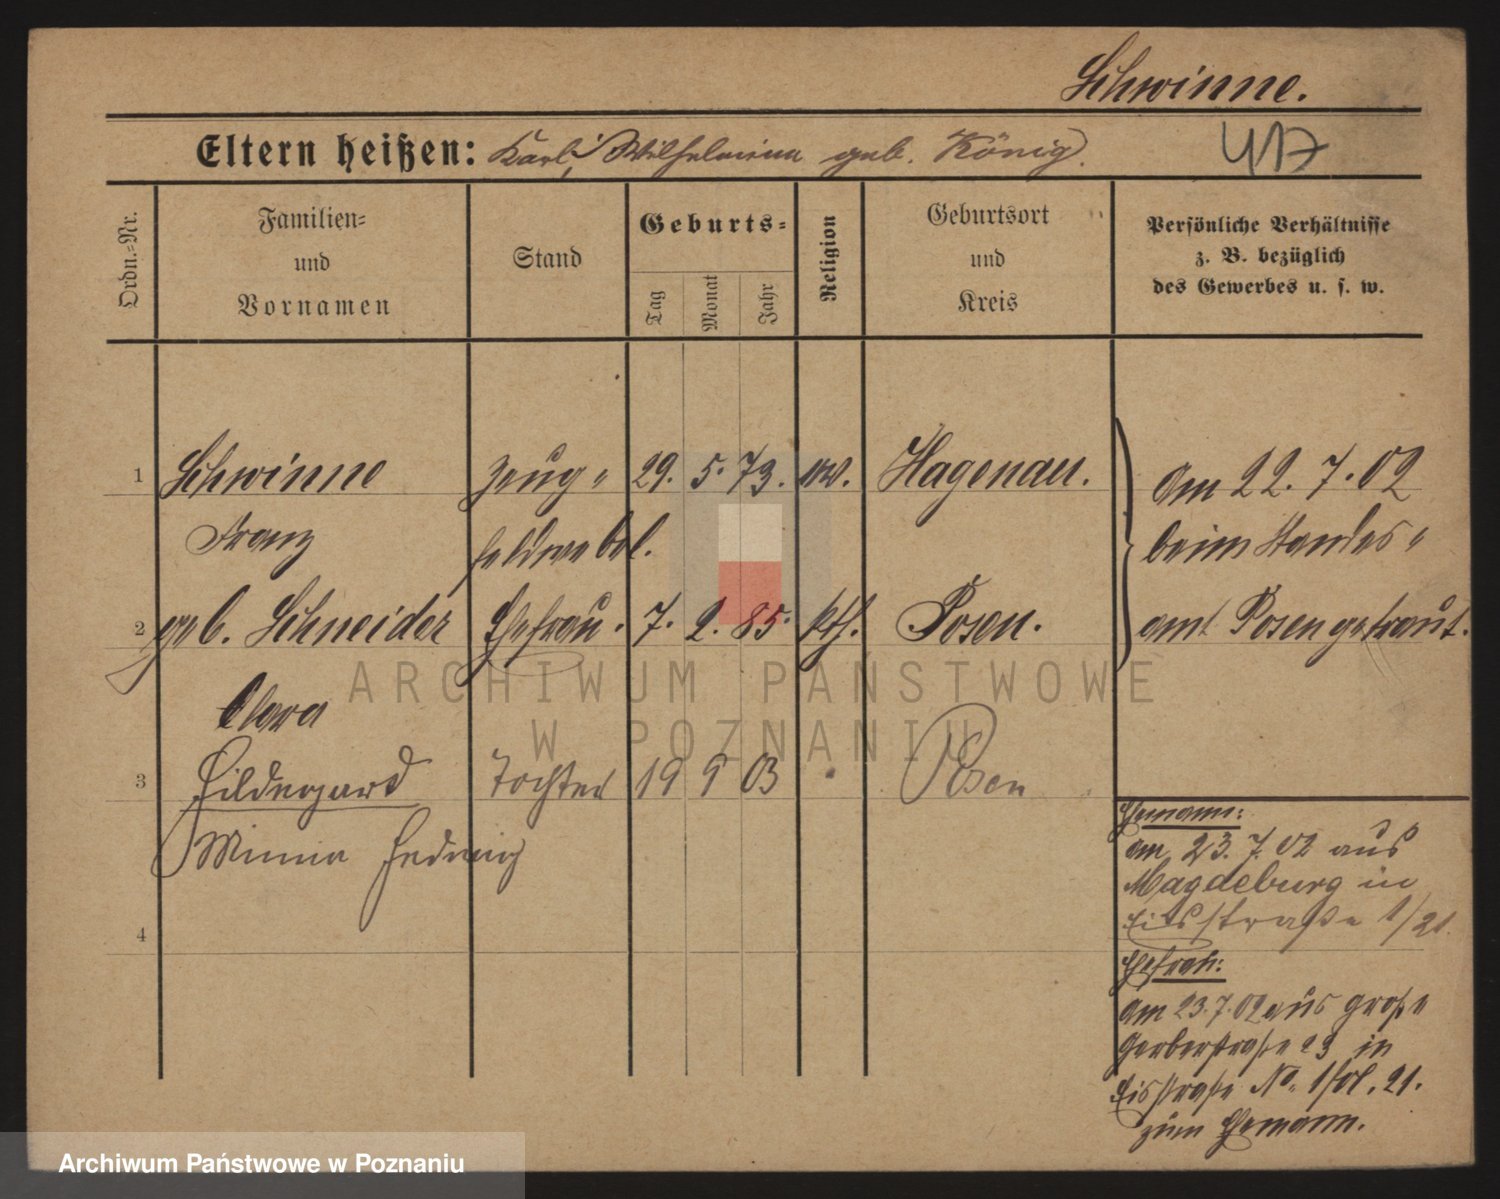 Schwinne.
Eltern heißen: Karl, Wilhelmina geb. König.
417
Ordn.-Nr.
Familien-
und
Vornamen
Stand
Geburts-
Tag
Monat
Jahr
Religion
Geburtsort
und
Kreis
Persönliche Verhältnisse
z. B. bezüglich
des Gewerbes u. s. w.
1 Schwinne Zeug- 29. 5. 73. ev. Hagenau. Am 22. 7. 02
Franz feldwebel. beim Standes-
2 geb. Schneider Ehefrau. 7. 2. 85. kth. Posen. amt Posen getraut.
Clara
3 Hildegard Tochter 19 9 03 Posen
Minna Hedwig
4
Ehemann:
am 23. 7. 02 aus
Magdeburg in
1/21.
Ehefrau:
am 23. 7. 02 aus große
Gerberstraße 23 in
No. 1 fol. 21.
zum Ehemann.
ARCHIWUM PAŃSTWOWE
W POZNANIU
Archiwum Państwowe w Poznaniu